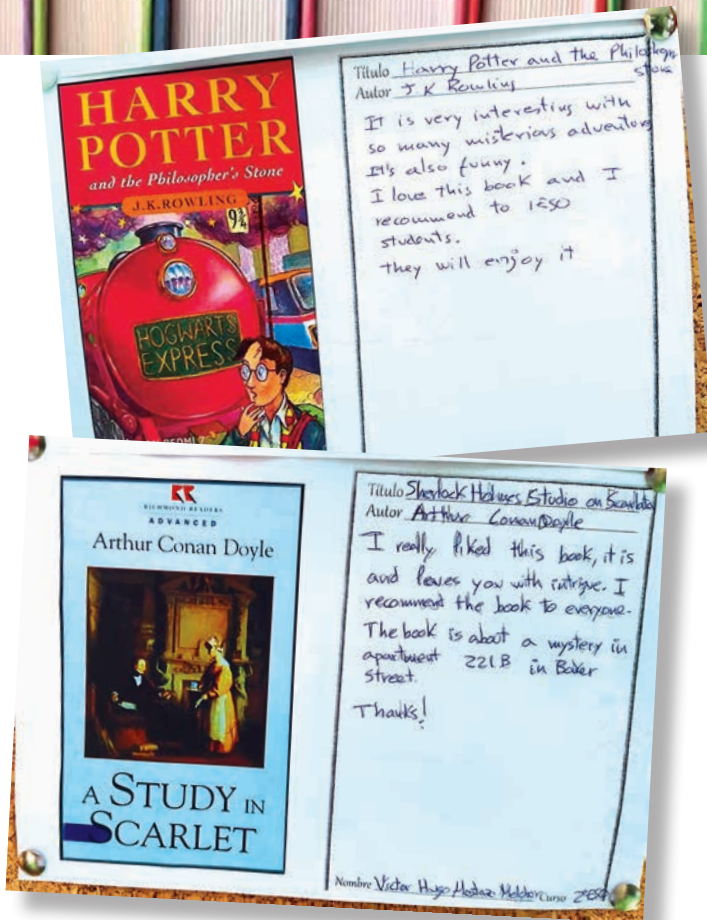 HARRY
POTTER
and the Philosopher's Stone
J.K.ROWLING
9¾
HOGWARTS
EXPRESS
Título Harry Potter and the
stone
Autor J K Rowling
It is very interesting with
so many misterious
It's also funny.
I love this book and I
recommend to 1ESO
students.
they will enjoy it
RICHMOND READERS
ADVANCED
Arthur Conan Doyle
A STUDY IN
SCARLET
Título Sherlock Holmes Estudio on
Autor Arthur Conan Doyle
I really liked this book, it is
and leaves you with intrigue. I
recommend the book to everyone.
The book is about a mystery in
apartment 221B in Baker
street.
Thanks!
Nombre Victor Hugo Curso 2ºESO